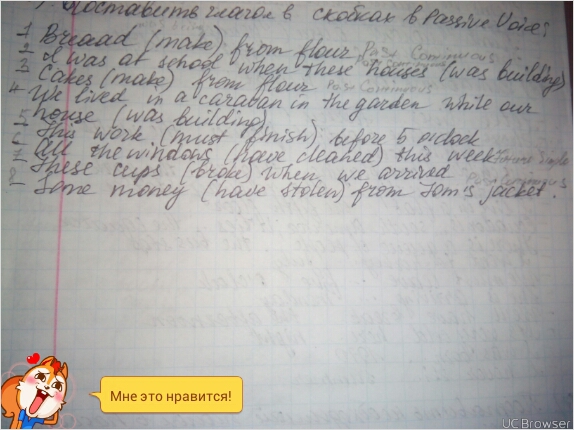 1. Поставить глагол в скобках в Passive Voice:
1 Breaad (make) from flour Past Continuous
2 I was at school when these houses (was building)
3 Cakes (make) from flour Past Continuous
4 We lived in a caraban in the garden while our
5 house (was building)
6 This work (must finish) before 5 o'clock
7 All the windows (have cleaned) this week Future Simple
8 These cups (broke) when we arrived Past Continuous
Some money (have stolen) from Tom's jacket.
Мне это нравится!
UC Browser